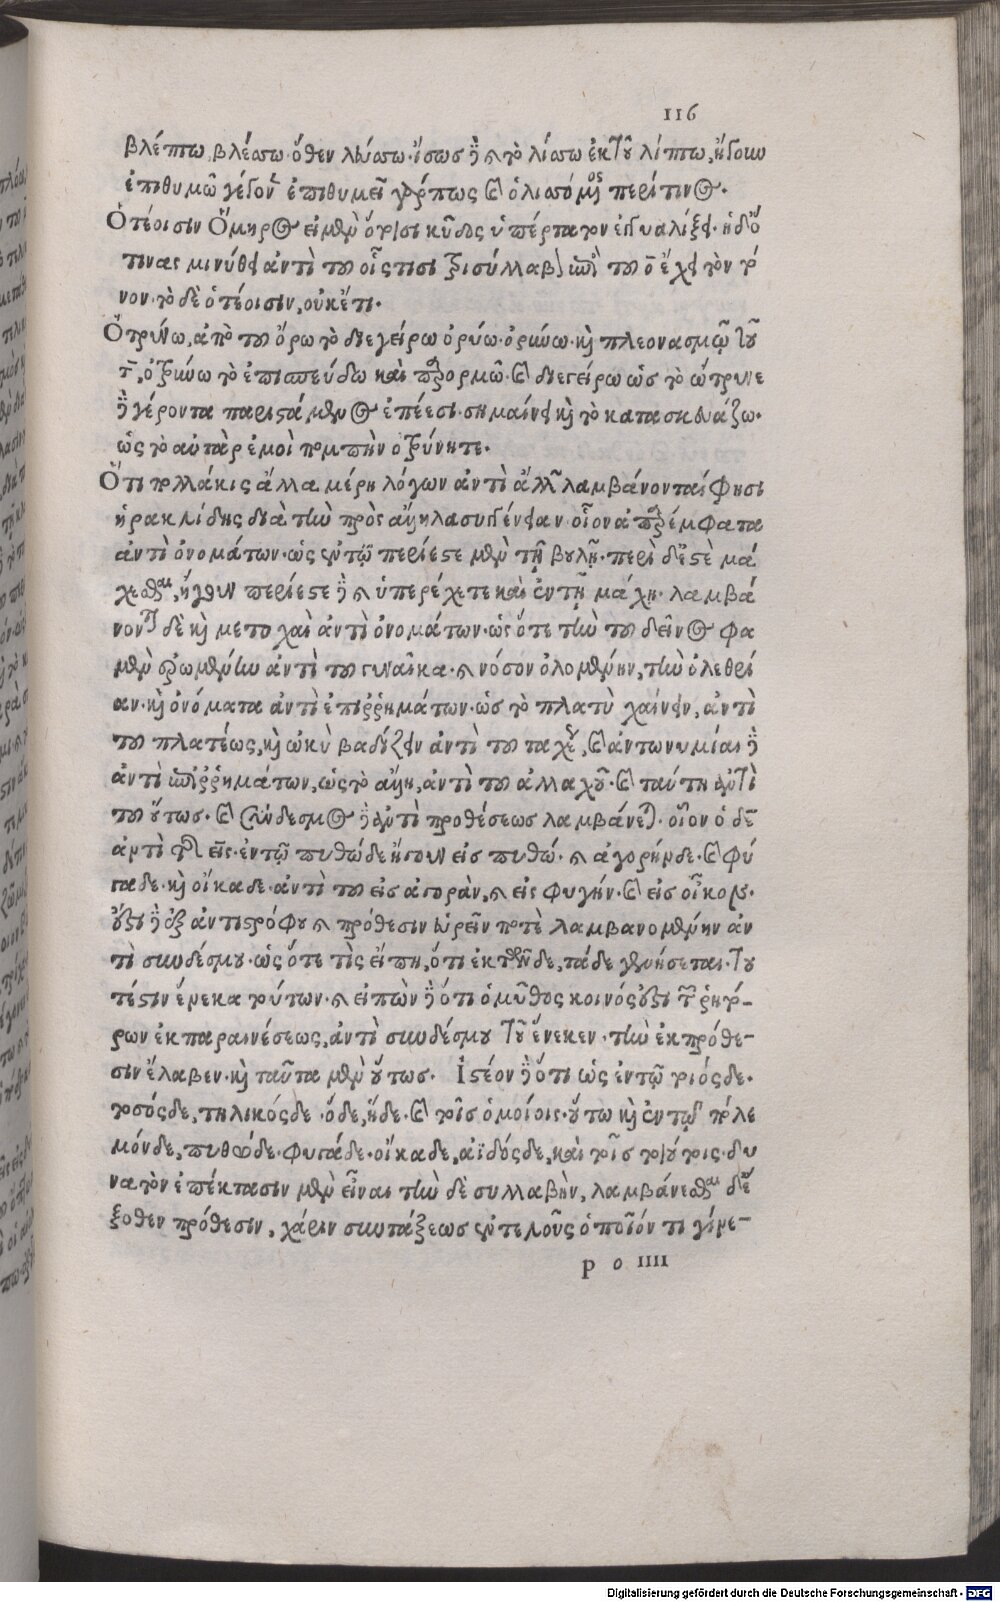 116
βλέπτω βλέσσω· ὅθεν λεύσσω· ἴσως δὲ καὶ τὸ λίσσω ἐκ τοῦ λίπτω, ἤγουν
ἐπιθυμῶ
Ὁτέοισιν Ὅμηρος εἰ μὲν ὅτοισι κῦδος ὑπέρτατον ἐγγυαλίξει· ἠδ' ὅ
τινας μινύθει ἀντὶ τοῦ οἷς τισι τρισύλλαβον ἐπὶ τοῦ ο ἔχει τὸν τό
νον· τὸ δὲ ὁτέοισιν, οὐκέτι.
Ὀτρύνω, ἀπὸ τοῦ ὄρω τὸ διεγείρω ὀρύω· ὀρύνω· καὶ πλεονασμῷ τοῦ
τ, ὀτρύνω τὸ ἐπισπεύδω καὶ παρορμῶ· καὶ διεγείρω ὡς τὸ ὤτρυνε
δὲ γέροντα παριστάμενος ἐπέεσι· σημαίνει καὶ τὸ κατασκευάζω·
ὡς τὸ αὐτὰρ ἐμοὶ πομπὴν ὀτρύνητε.
Ὅτι πολλάκις ἄλλα μέρη λόγων ἀντὶ ἄλλων λαμβάνονται φησὶ
ἡρακλίδης διὰ τὴν πρὸς ἄλληλα συγγένειαν οἷον ἀπαρέμφατα
ἀντὶ ὀνομάτων· ὡς ἐν τῷ περίεστε μὲν τῇ βουλῇ· περὶ δ' ἔστε μά
χεσθαι, ἤγουν περίεστε δὲ καὶ ὑπερέχετε καὶ ἐν τῇ μάχῃ· λαμβά
νονται δὲ καὶ μετοχαὶ ἀντὶ ὀνομάτων· ὡς ὅτε τὴν τοῦ δεῖνος φα
μὲν ἐρωμένην ἀντὶ τοῦ γυναῖκα· καὶ νόσον ὀλομένην, τὴν ὀλεθρί
αν· καὶ ὀνόματα ἀντὶ ἐπιῤῥημάτων· ὡς τὸ πλατὺ χαίνειν, ἀντὶ
τοῦ πλατέως, καὶ ὠκὺ βαδίζειν ἀντὶ τοῦ ταχὺ, καὶ ἀντωνυμίαι δὲ
ἀντὶ ἐπιῤῥημάτων, ὡς τὸ ἄλλη, ἀντὶ τοῦ ἀλλαχοῦ· καὶ ταύτη ἀντὶ
τοῦ οὕτως· καὶ σύνδεσμος δὲ ἀντὶ προθέσεως λαμβάνεται· οἷον ὁ δὲ
ἀντὶ τῆς εἰς· ἐν τῷ πυθώδε ἤγουν εἰς πυθώ· καὶ ἀγορήνδε· καὶ φύ
γαδε· καὶ οἴκαδε· ἀντὶ τοῦ εἰς ἀγορὰν, καὶ εἰς φυγήν· καὶ εἰς οἶκον·
ἔστι δὲ ἐξ ἀντιστρόφου καὶ πρόθεσιν εὑρεῖν ποτὲ λαμβανομένην ἀν
τὶ συνδέσμου· ὡς ὅτε τὶς εἴπῃ, ὅτι ἐκ τῶνδε, τάδε γενήσεται· του
τέστιν ἕνεκα τούτων· καὶ εἰπὼν δὲ ὅτι ὁ μῦθος κοινός ἐστι τῶν ῥητό-
ρων ἐκ παραινέσεως, ἀντὶ συνδέσμου τοῦ ἕνεκεν· τὴν ἐκ πρόθε-
σιν ἔλαβεν· καὶ ταῦτα μὲν οὕτως. Ἰστέον δὲ ὅτι ὡς ἐν τῷ τοιόςδε·
τοσόςδε, τηλικόςδε· ὅδε, ἥδε· καὶ τοῖς ὁμοίοις· οὕτω καὶ ἐν τῷ πόλε
μόνδε, πυθώδε· φυγάδε· οἴκαδε, ἀϊδόςδε, καὶ τοῖς τοιούτοις· δυ
νατὸν ἐπέκτασιν μὲν εἶναι τὴν δὲ συλλαβὴν, λαμβάνεσθαι δὲ ἔ
ξοθεν πρόθεσιν, χάριν συντάξεως ἐντελοῦς ὁποῖόν τι γίνε-
p o IIII
Digitalisierung gefördert durch die Deutsche Forschungsgemeinschaft - DFG